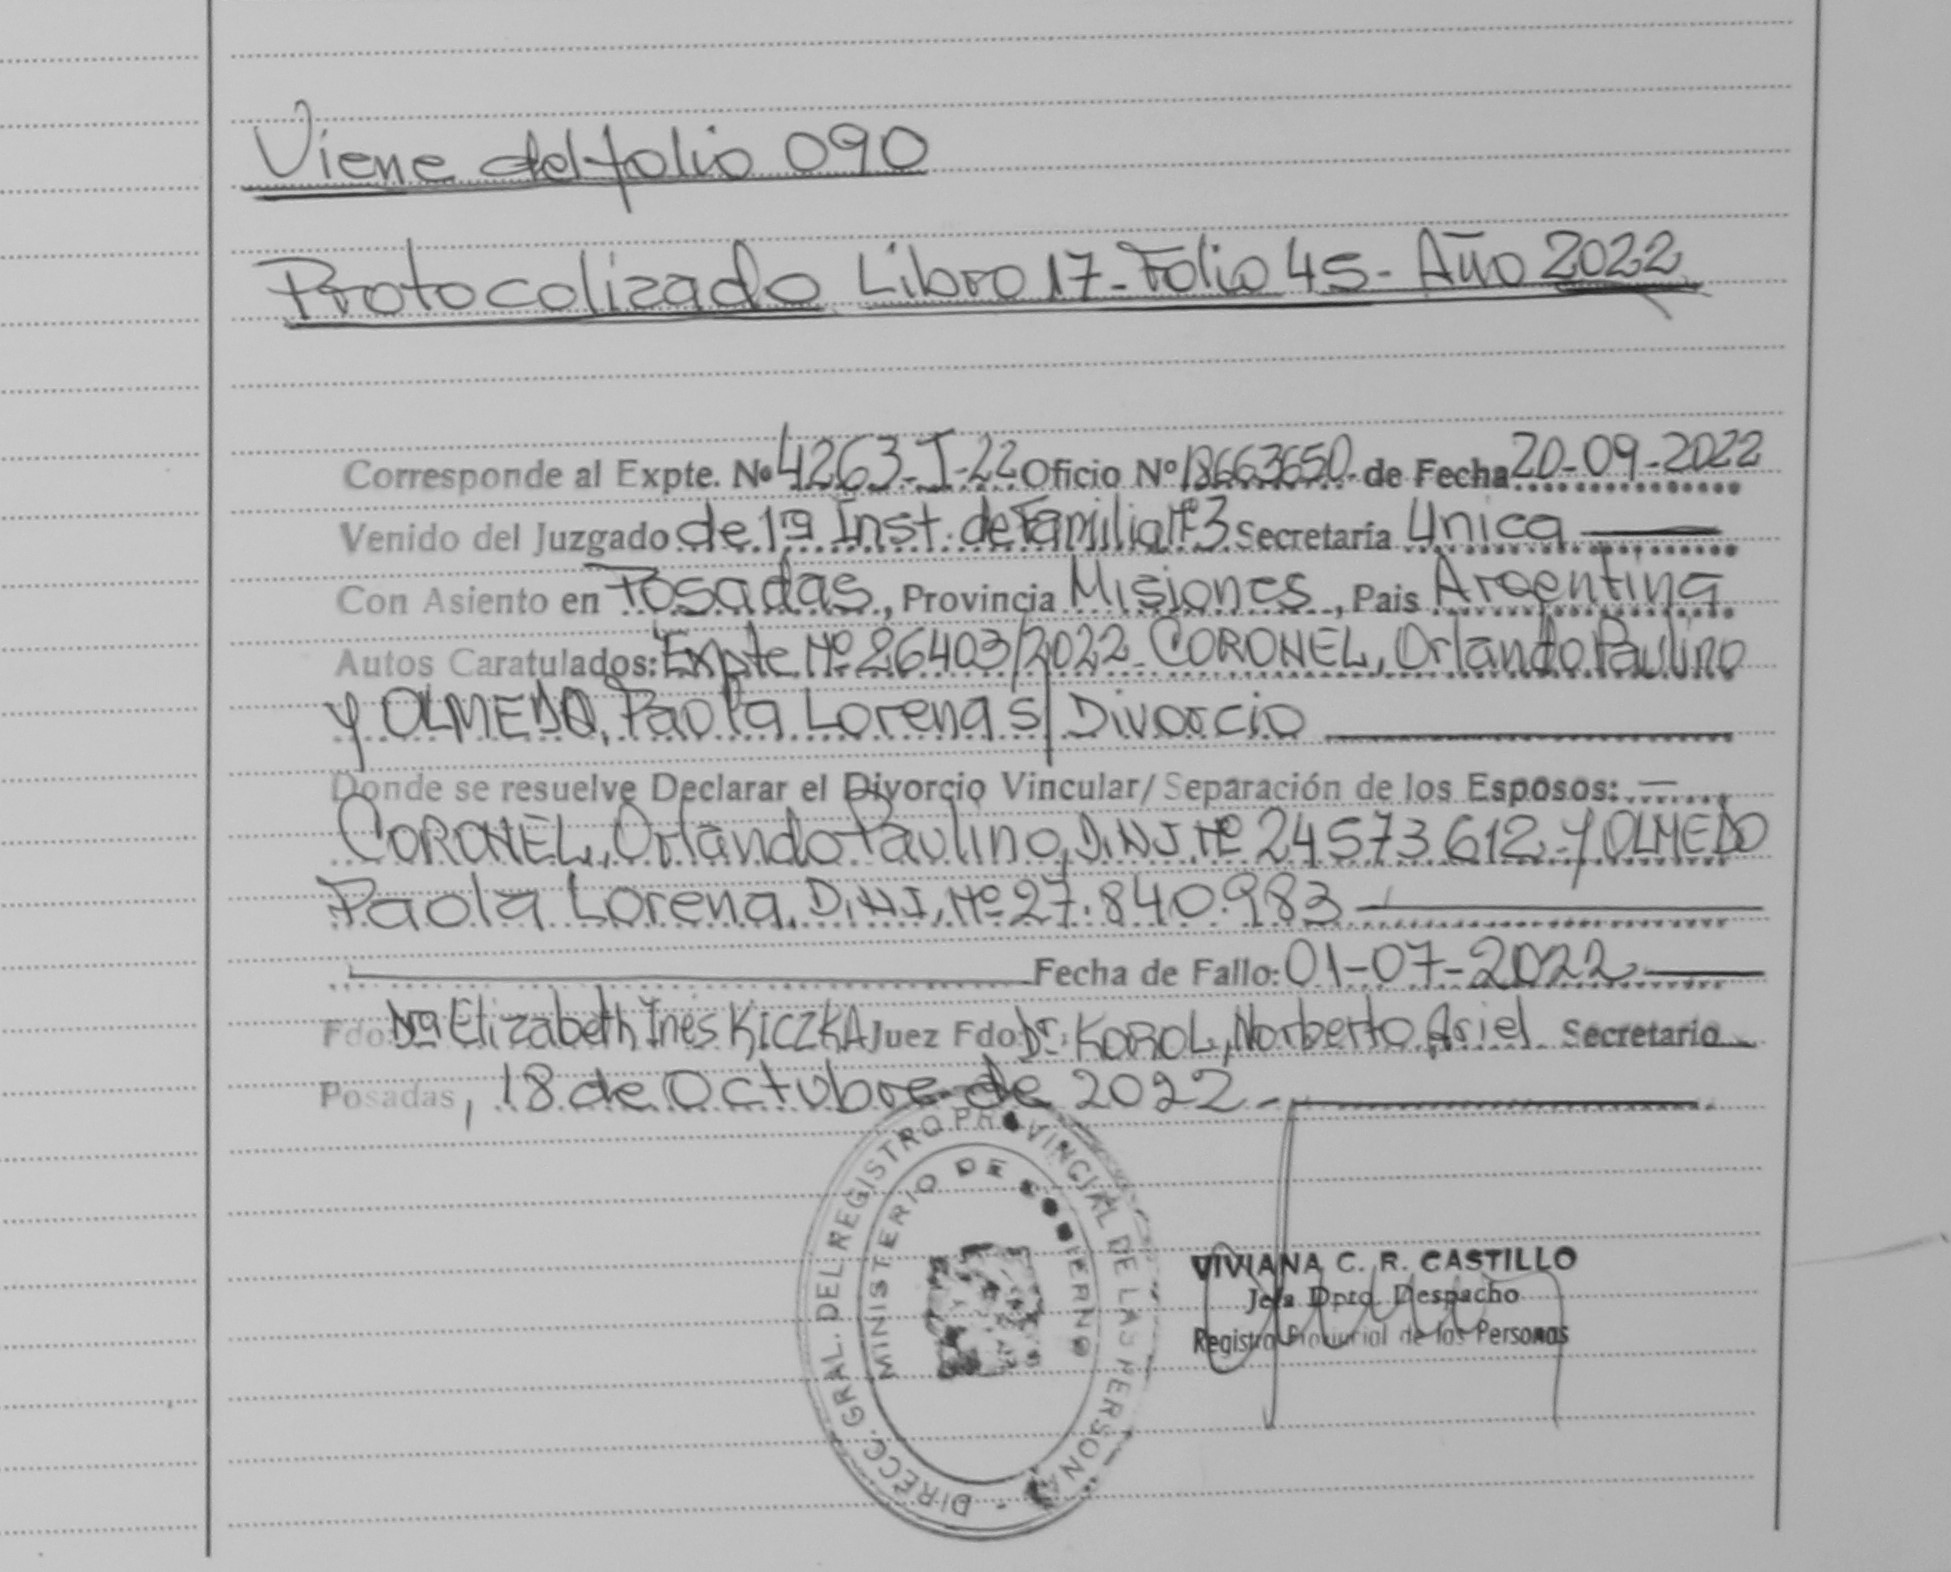 Viene del folio 090
Protocolizado Libro 17-Folio 45- Año 2022
Corresponde al Expte. Nº 4263-J-22 Oficio Nº 18663650 de Fecha 20-09-2022
Venido del Juzgado de 1ra Inst. de Familia Nº 3 Secretaría Unica
Con Asiento en Posadas, Provincia Misiones, Pais Argentina
Autos Caratulados: Expte Nº 26403/2022 CORONEL, Orlando Paulino
y OLMEDO, Paola Lorena s/ Divorcio
Donde se resuelve Declarar el Divorcio Vincular/ Separación de los Esposos:
CORONEL, Orlando Paulino, D.N.I. Nº 24573612 y OLMEDO
Paola Lorena, D.N.I. Nº 27.840.983
Fecha de Fallo: 01-07-2022
Fdo: Dra Elizabeth Ines KICZKA Juez Fdo Dr. KOROL, Norberto Ariel Secretario
Posadas, 18 de Octubre de 2022.-
DIRECC. GRAL. DEL REGISTRO PROVINCIAL DE LAS PERSONAS -
MINISTERIO DE GOBIERNO
VIVIANA C. R. CASTILLO
Jefa Dpto. Despacho
Registro Provincial de las Personas